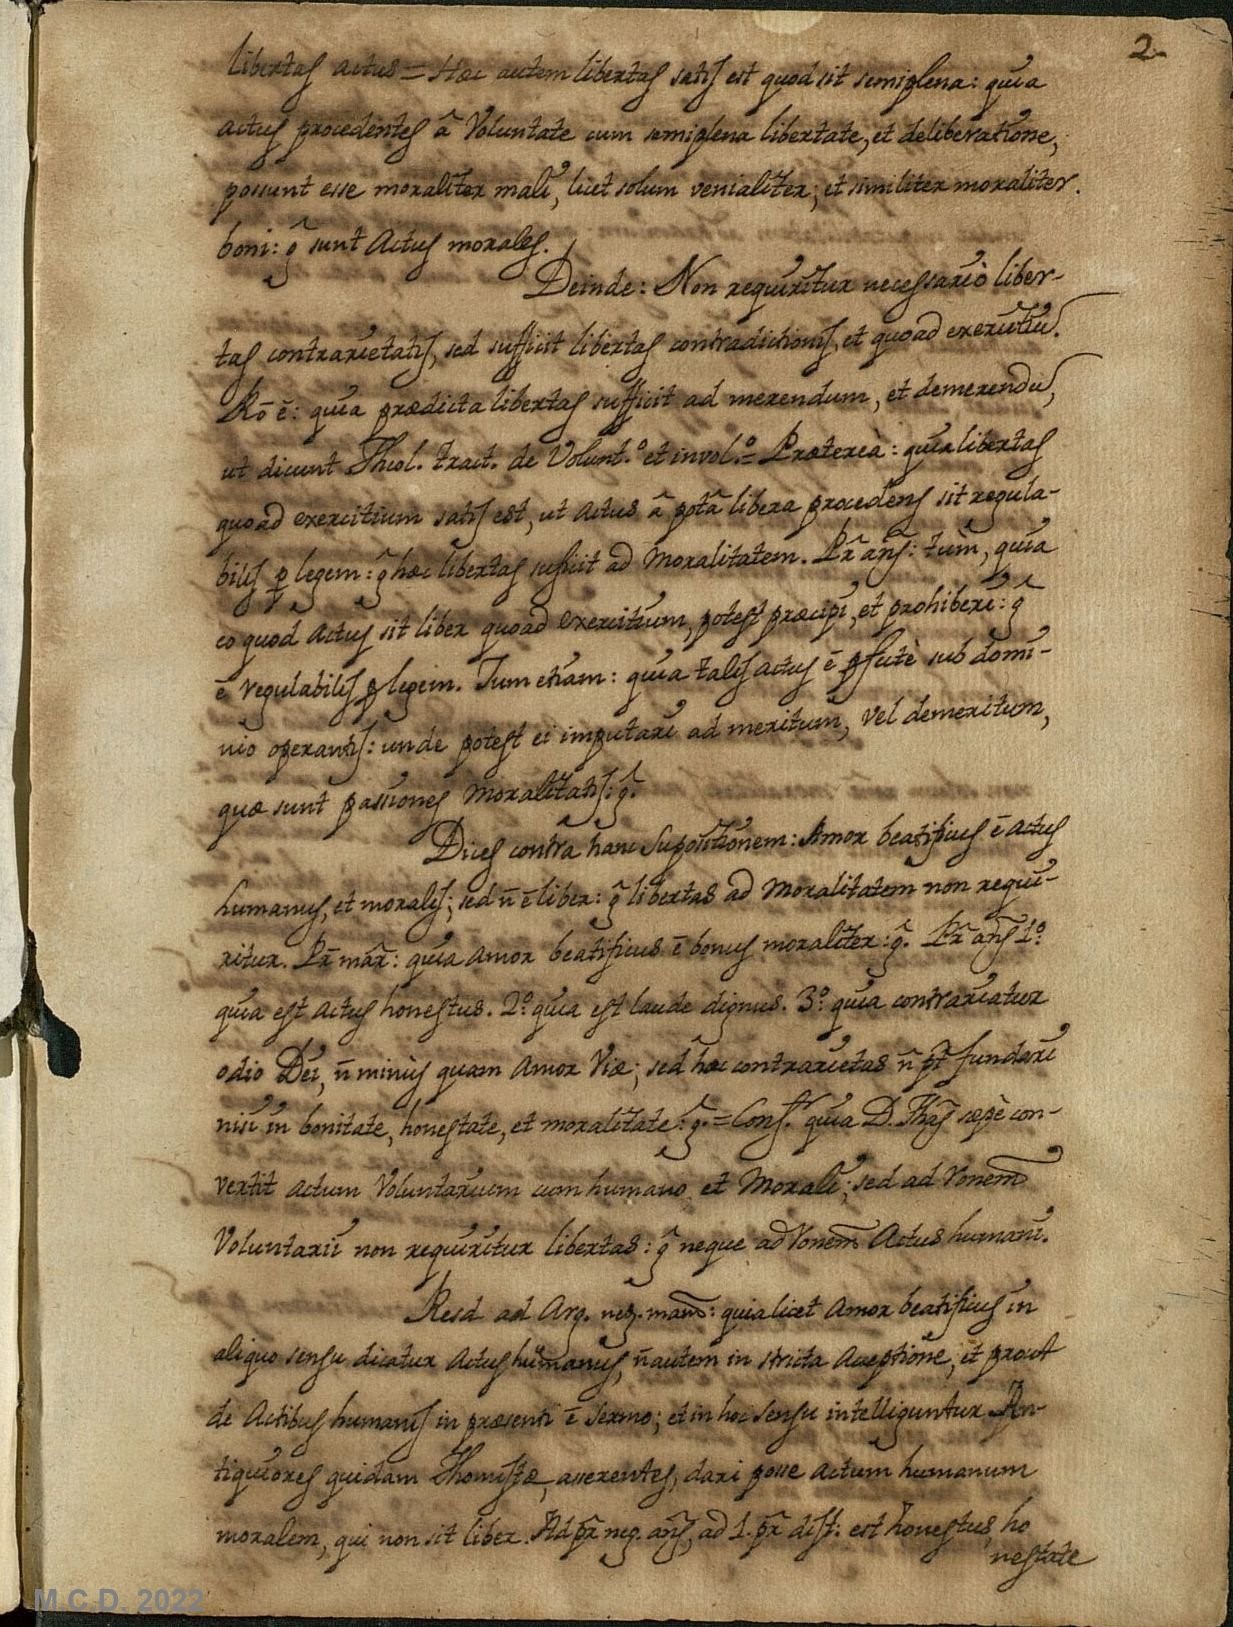 2
libertas actus = Hæc autem libertas satis est quod sit semiplena: quia
actus procedentes â Voluntate cum semiplena libertate, et deliberatione,
possunt esse moraliter mali, licet solum venialiter; et similiter moraliter
boni: g̃ sunt Actus morales.
Deinde: Non requiritur necessariò liber-
tas contrarietatis, sed sufficit libertas contradictionis, et quoad exercitiũ.
Rõ ẽ: quia prædicta libertas sufficit ad merendum, et demerendũ,
ut dicunt Theol. tract. de Volunt.º et invol.º = Præterea: quia libertas
quoad exercitium satis est, ut Actus â potã libera procedens sit regula-
bilis p legem: g̃ hæc libertas suficit ad Moralitatem. Pr̃ añs: tum, quia
eo quod Actus sit liber quoad exercitium, potest præcipi, et prohiberi: g̃
ẽ regulabilis p legem. Tum etiam: quia talis actus ẽ pfectè sub domi-
nio operantis: unde potest ei imputari ad meritum, vel demeritum,
quæ sunt passiones Moralitatis: g̃.
Dices contra hanc Supositionem: Amor beatificus ẽ actus
humanus, et moralis; sed ñ ẽ liber: g̃ libertas ad Moralitatem non requi-
ritur. Pr̃ mãr: quia Amor beatificus ẽ bonus moraliter: g̃. Pr̃ añs 1º
quia est Actus honestus. 2º quia est laude dignus. 3º quia contrariatur
odio Dei, ñ minùs quam Amor Viæ; sed hæc contrarietas ñ pt̃ fundari
nisi in bonitate, honestate, et moralitate: g̃. = Conf.r quia D. Thãs sæpè con-
vertit actum Voluntarium cum humano, et Morali; sed ad Vonem̃
Voluntarii non requiritur libertas: g̃ neque ad Vonem̃ Actus humani.
Resd ad Arg. neg. mam̃: quia licet Amor beatificus in
aliquo sensu dicatur Actus humanus, ñ autem in stricta Aceptione, et prout
de Actibus humanis in præsenti ẽ sermo; et in hoc sensu intelliguntur An-
tiquiores quidam Thomistæ, asserentes, dari posse actum humanum
moralem, qui non sit liber. Ad pr̃ neg. añs, ad 1. pr̃ dist: est honestus, ho
nestate
M.C.D. 2022